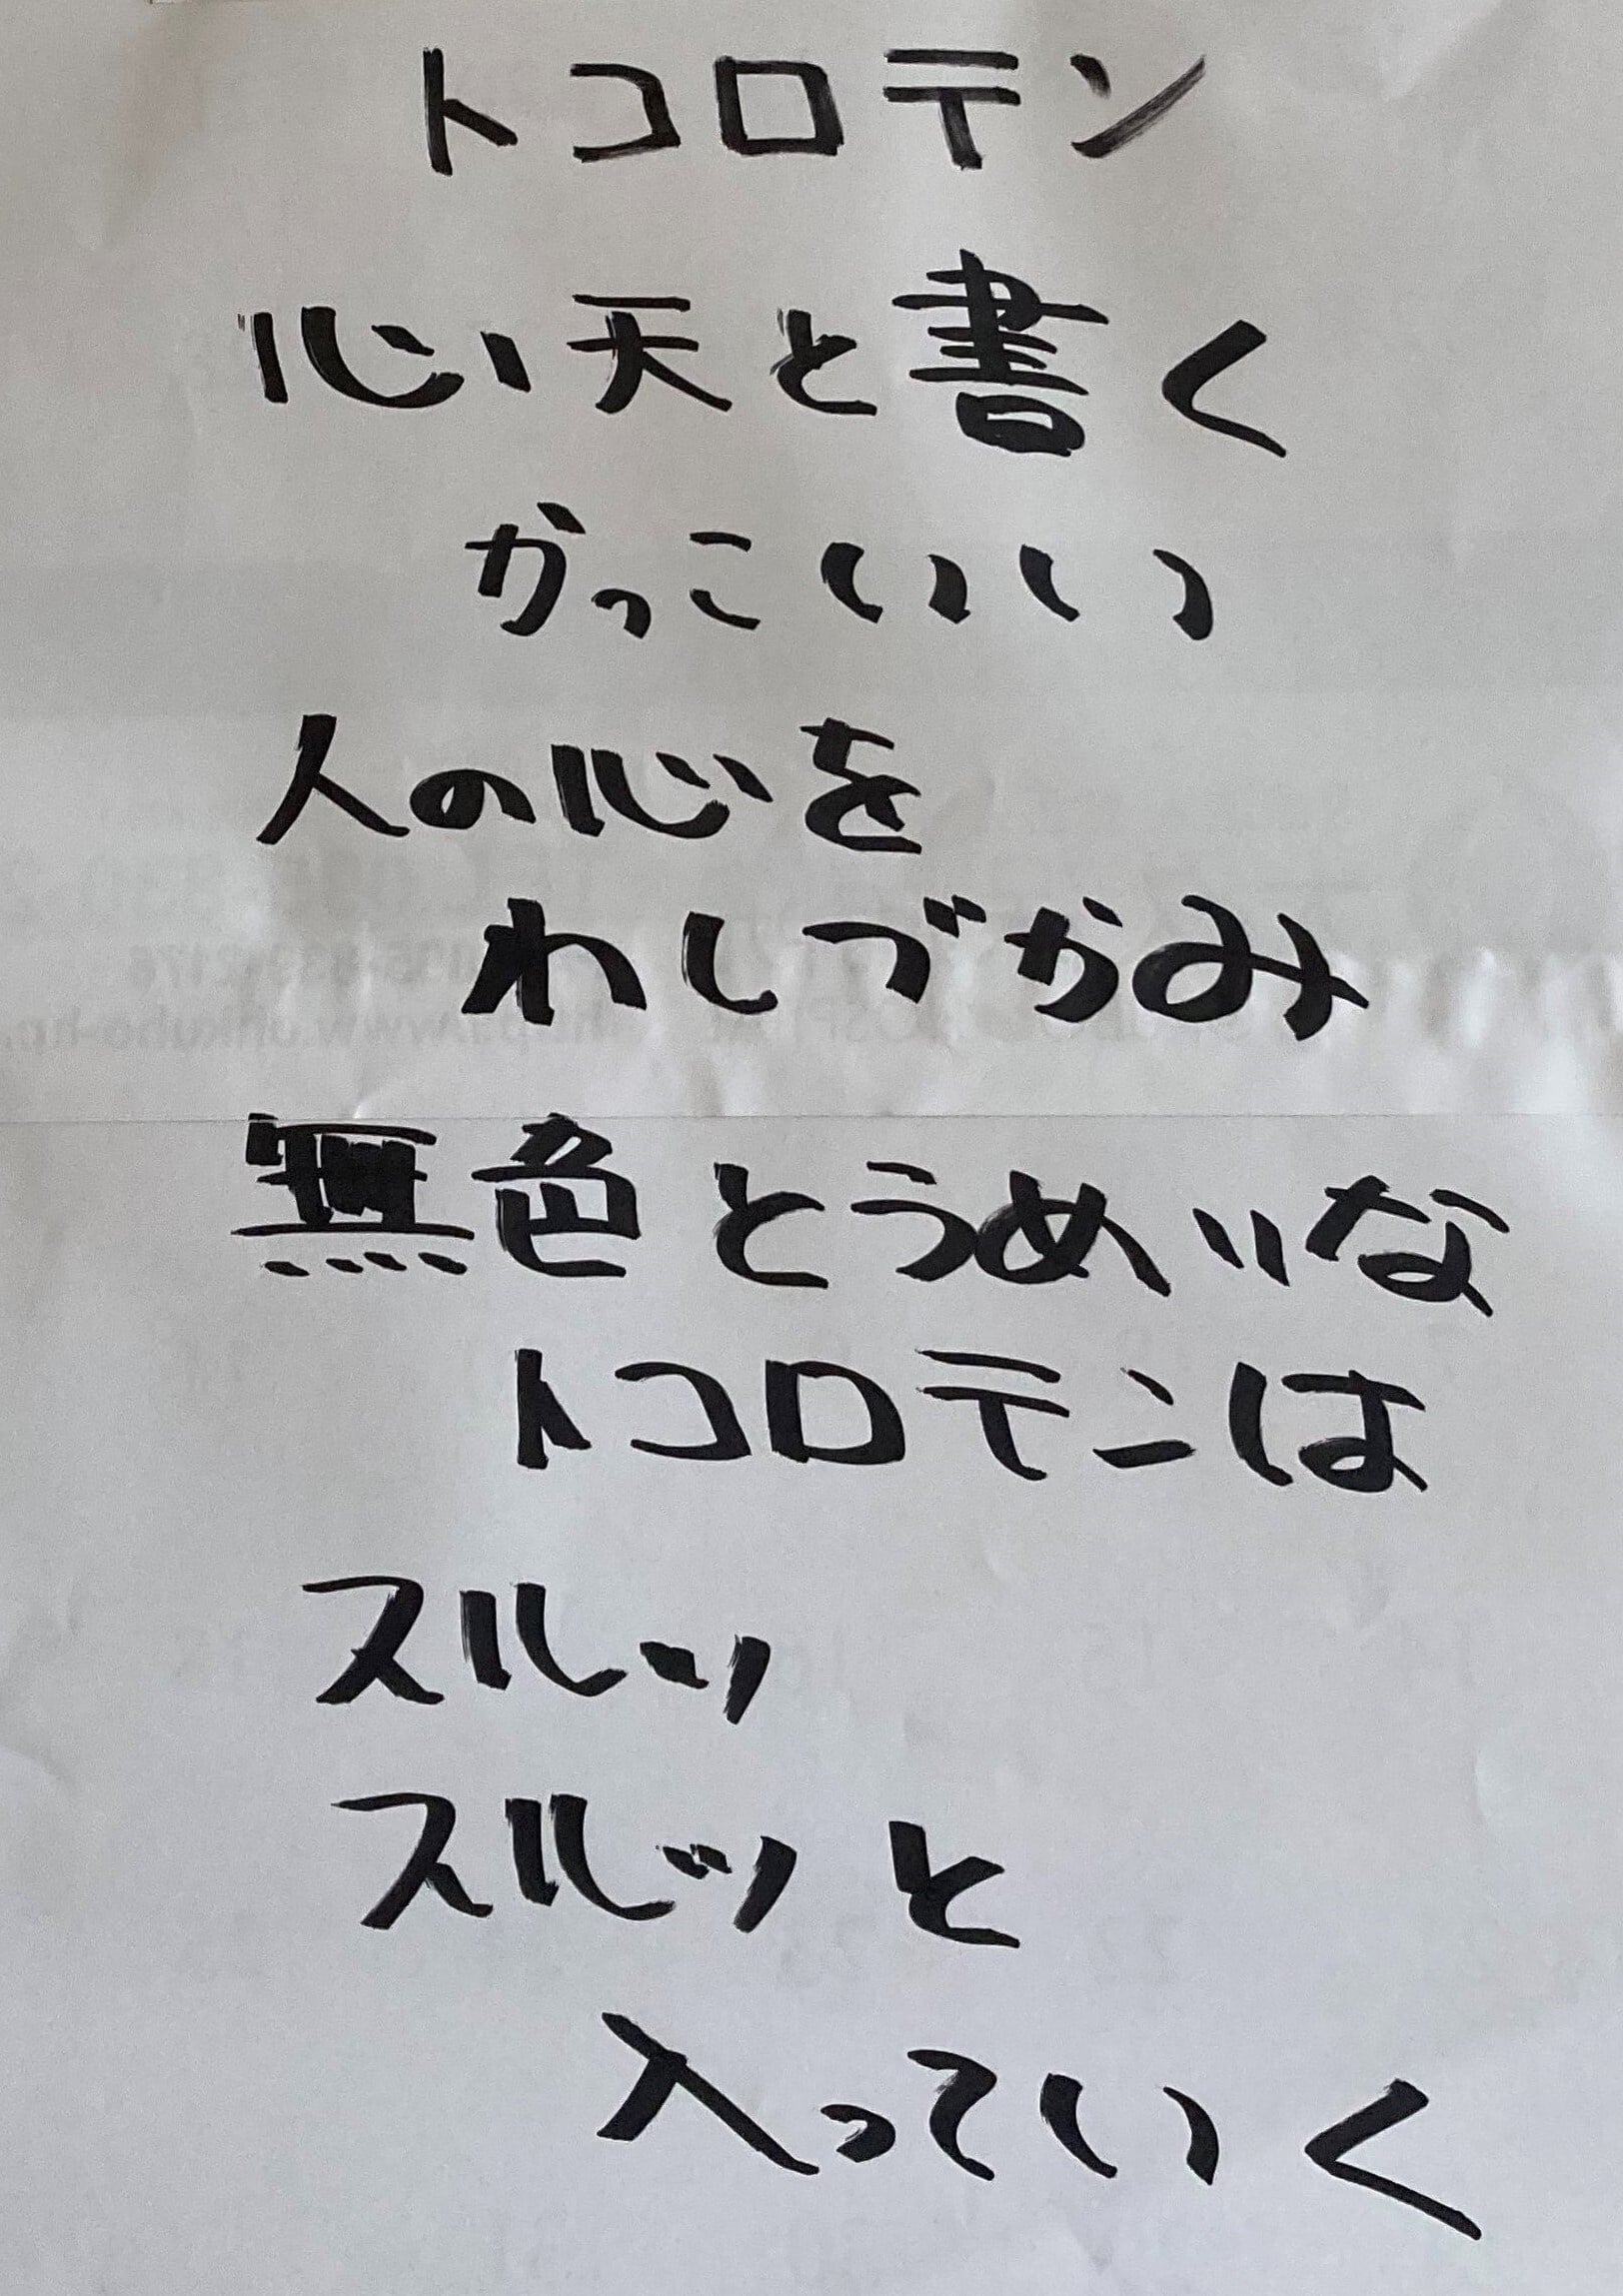 トコロテン
心天と書く
かっこいい
人の心を
わしづかみ
無色とうめいな
トコロテンは
スルッ
スルッと
入っていく